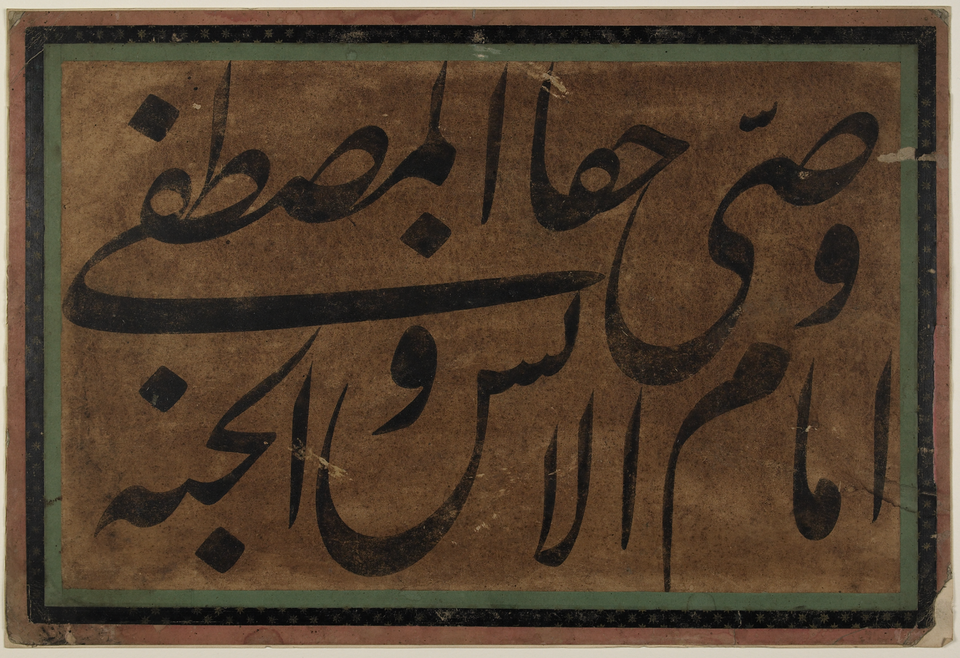 وصّی حقا المصطفی
امام الانس و الجنه